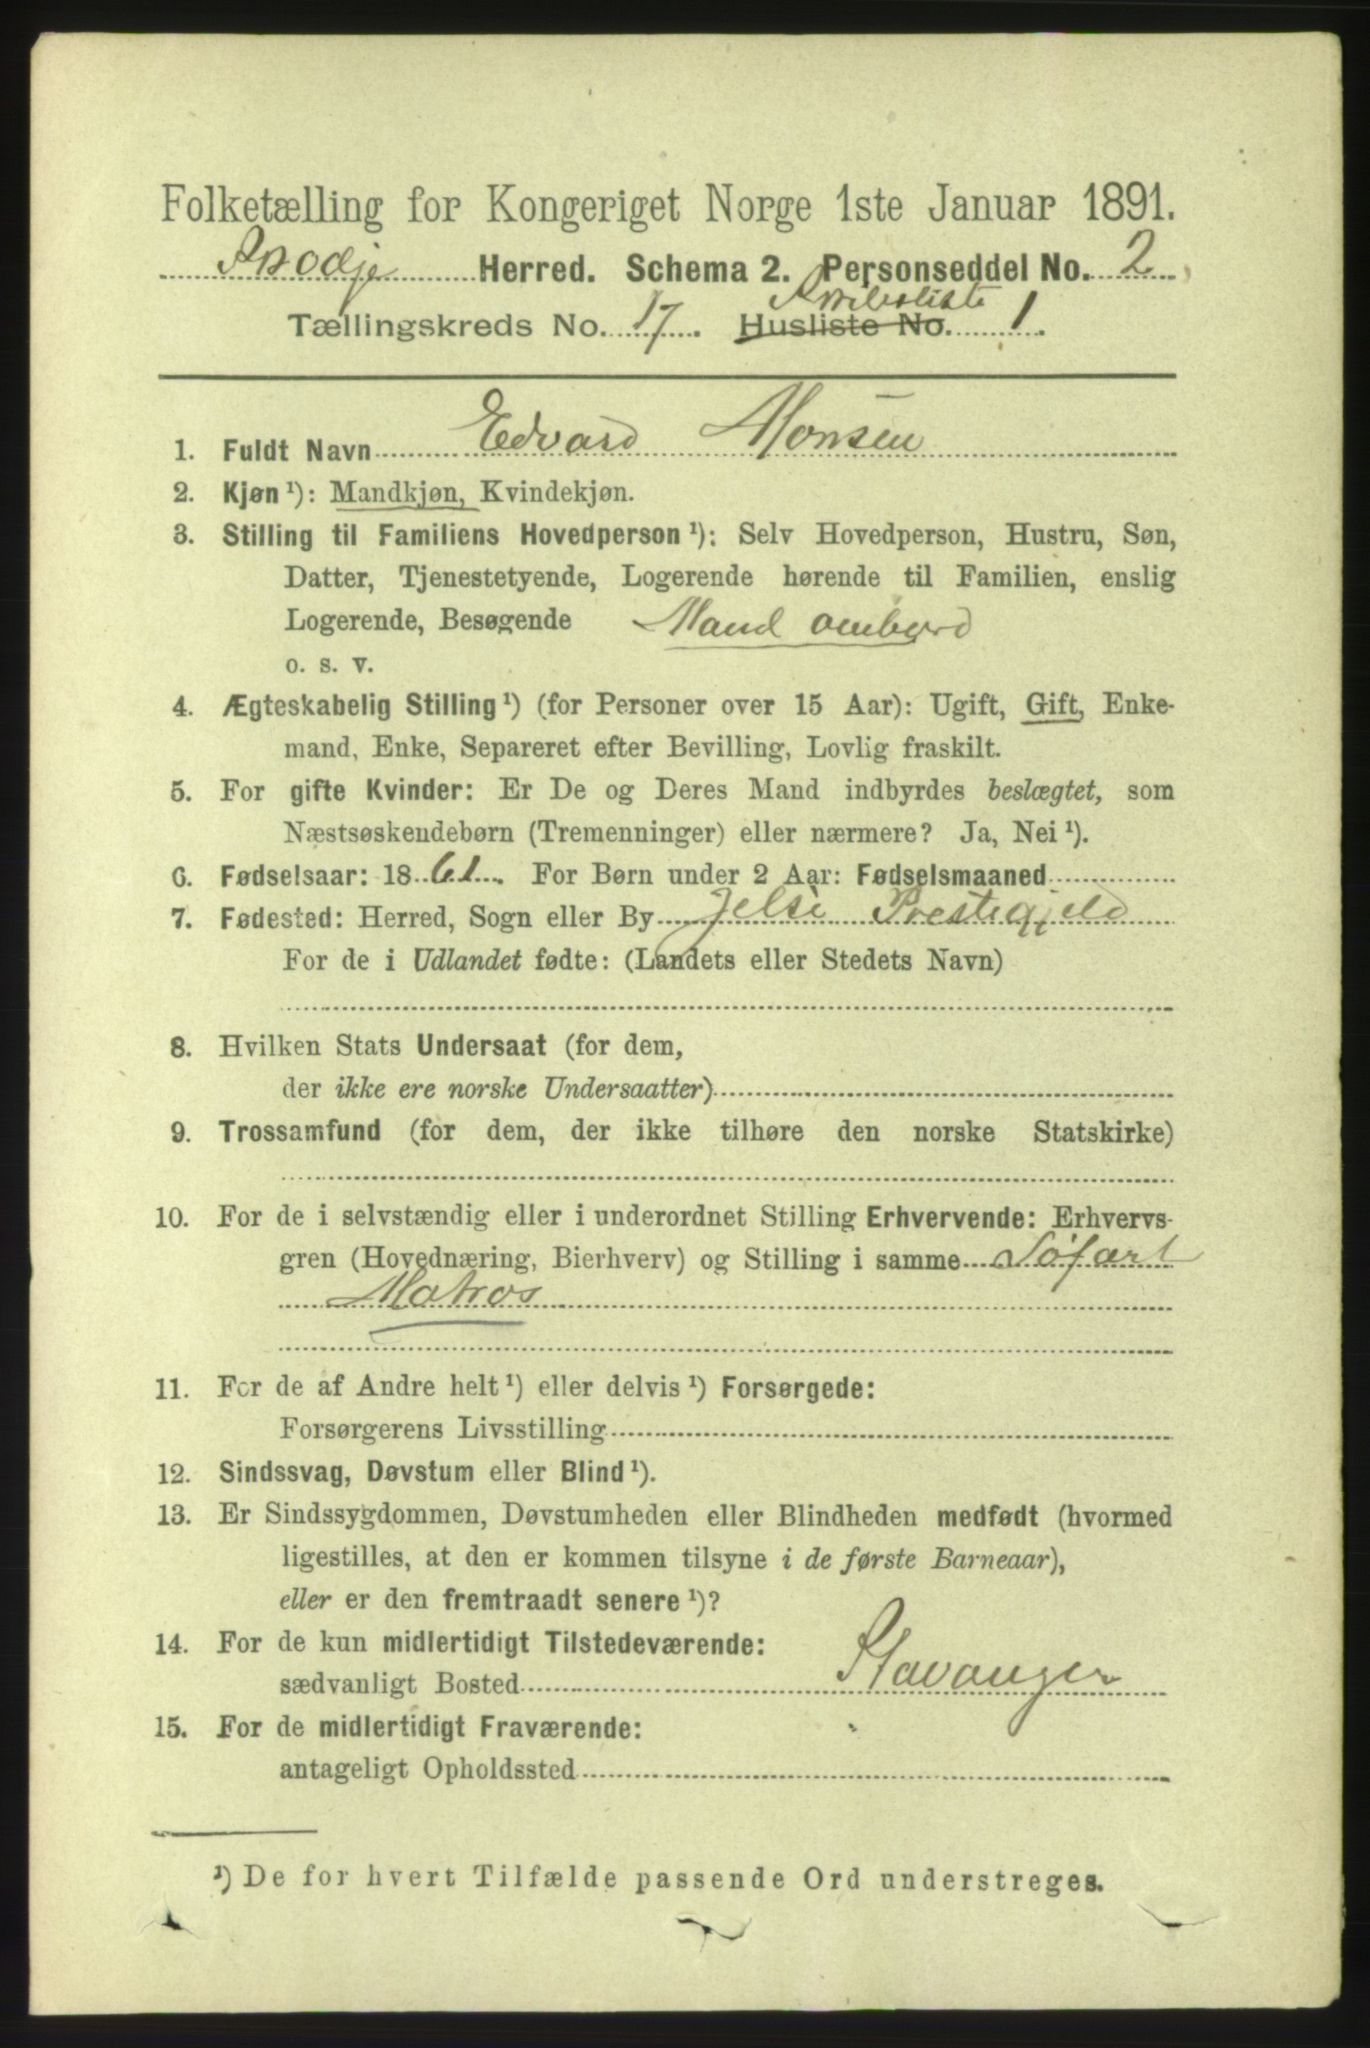 Folketælling for Kongeriget Norge 1ste Januar 1891.
Herred. Schema 2. Personseddel No. 2
Skibsliste
Tællingskreds No. 17. Husliste No. 1.
1. Fuldt Navn Edvard Monsen
2. Kjøn ¹): Mandkjøn, Kvindekjøn.
3. Stilling til Familiens Hovedperson ¹): Selv Hovedperson, Hustru, Søn,
Datter, Tjenestetyende, Logerende hørende til Familien, enslig
Logerende, Besøgende Mand ombord
o. s. v.
4. Ægteskabelig Stilling ¹) (for Personer over 15 Aar): Ugift, Gift, Enke-
mand, Enke, Separeret efter Bevilling, Lovlig fraskilt.
5. For gifte Kvinder: Er De og Deres Mand indbyrdes beslægtet, som
Næstsøskendebørn (Tremenninger) eller nærmere? Ja, Nei ¹).
6. Fødselsaar: 1861. For Børn under 2 Aar: Fødselsmaaned
7. Fødested: Herred, Sogn eller By Jelse Prestegjeld
For de i Udlandet fødte: (Landets eller Stedets Navn)
8. Hvilken Stats Undersaat (for dem,
der ikke ere norske Undersaatter)
9. Trossamfund (for dem, der ikke tilhøre den norske Statskirke)
10. For de i selvstændig eller i underordnet Stilling Erhvervende: Erhvervs-
gren (Hovednæring, Bierhverv) og Stilling i samme Søfart
Matros
11. For de af Andre helt ¹) eller delvis ¹) Forsørgede:
Forsørgerens Livsstilling
12. Sindssvag, Døvstum eller Blind ¹).
13. Er Sindssygdommen, Døvstumheden eller Blindheden medfødt (hvormed
ligestilles, at den er kommen tilsyne i de første Barneaar),
eller er den fremtraadt senere ¹)?
14. For de kun midlertidigt Tilstedeværende:
sædvanligt Bosted Stavanger
15. For de midlertidigt Fraværende:
antageligt Opholdssted
¹) De for hvert Tilfælde passende Ord understreges.